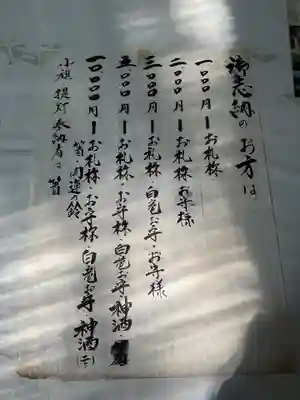 御志納のお方は
一〇〇〇円ーお札様
二〇〇〇円ーお札様お守様
三〇〇〇円ーお札様・白巳お守・お守様
五、〇〇〇円ーお札様・お守様・白巳お守・神酒・
一〇、〇〇〇円ーお札様・お守様・白巳お守・神酒(一合)
開運の鈴
小旗 提灯 奉納者は